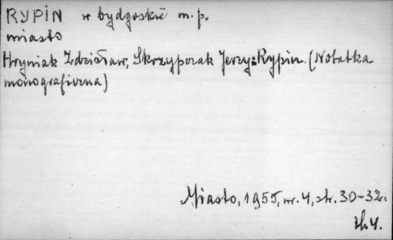 RYPIN w bydgoskie m.p.
miasto
Hryniak Zdzisław, Skrzypczak Jerzy: Rypin. (Notatka
monograficzna)
Miasto, 1955, nr. 4, str. 30-32.